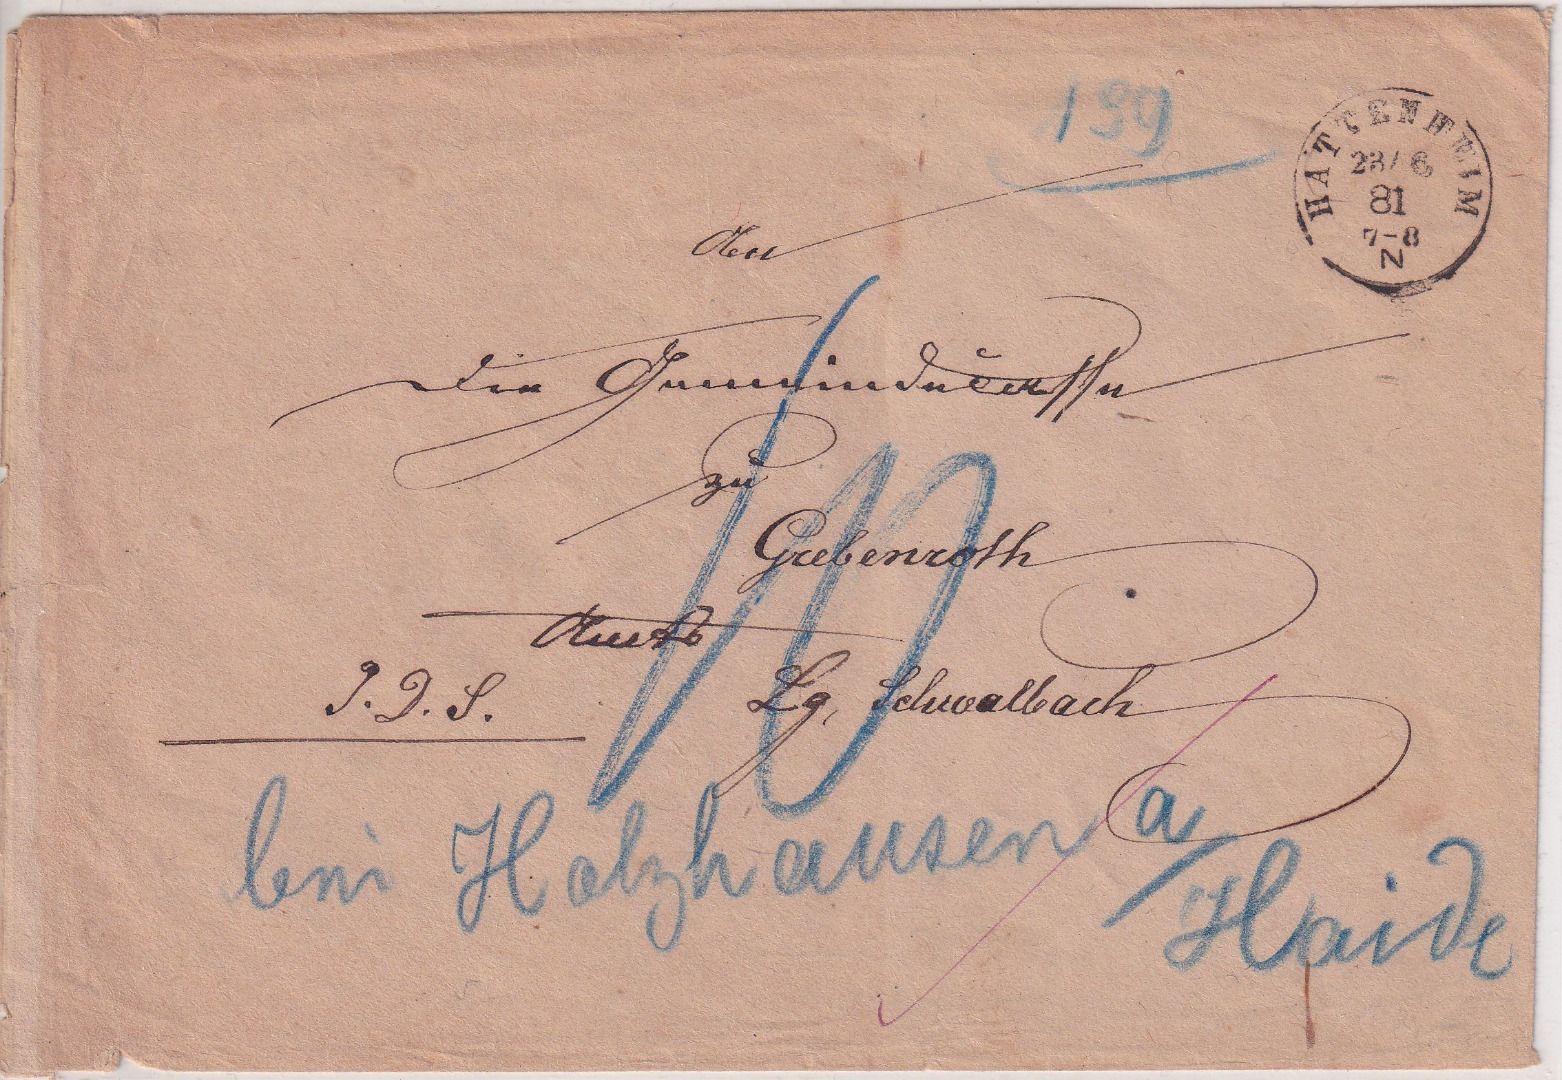 139
HATTENHEIM
23/6
81
7-8
N
An
die Gemeindecasse
zu
Grebenroth
Amts
Lg. Schwalbach
J. D. S.
10
bei Holzhausen a/Haide